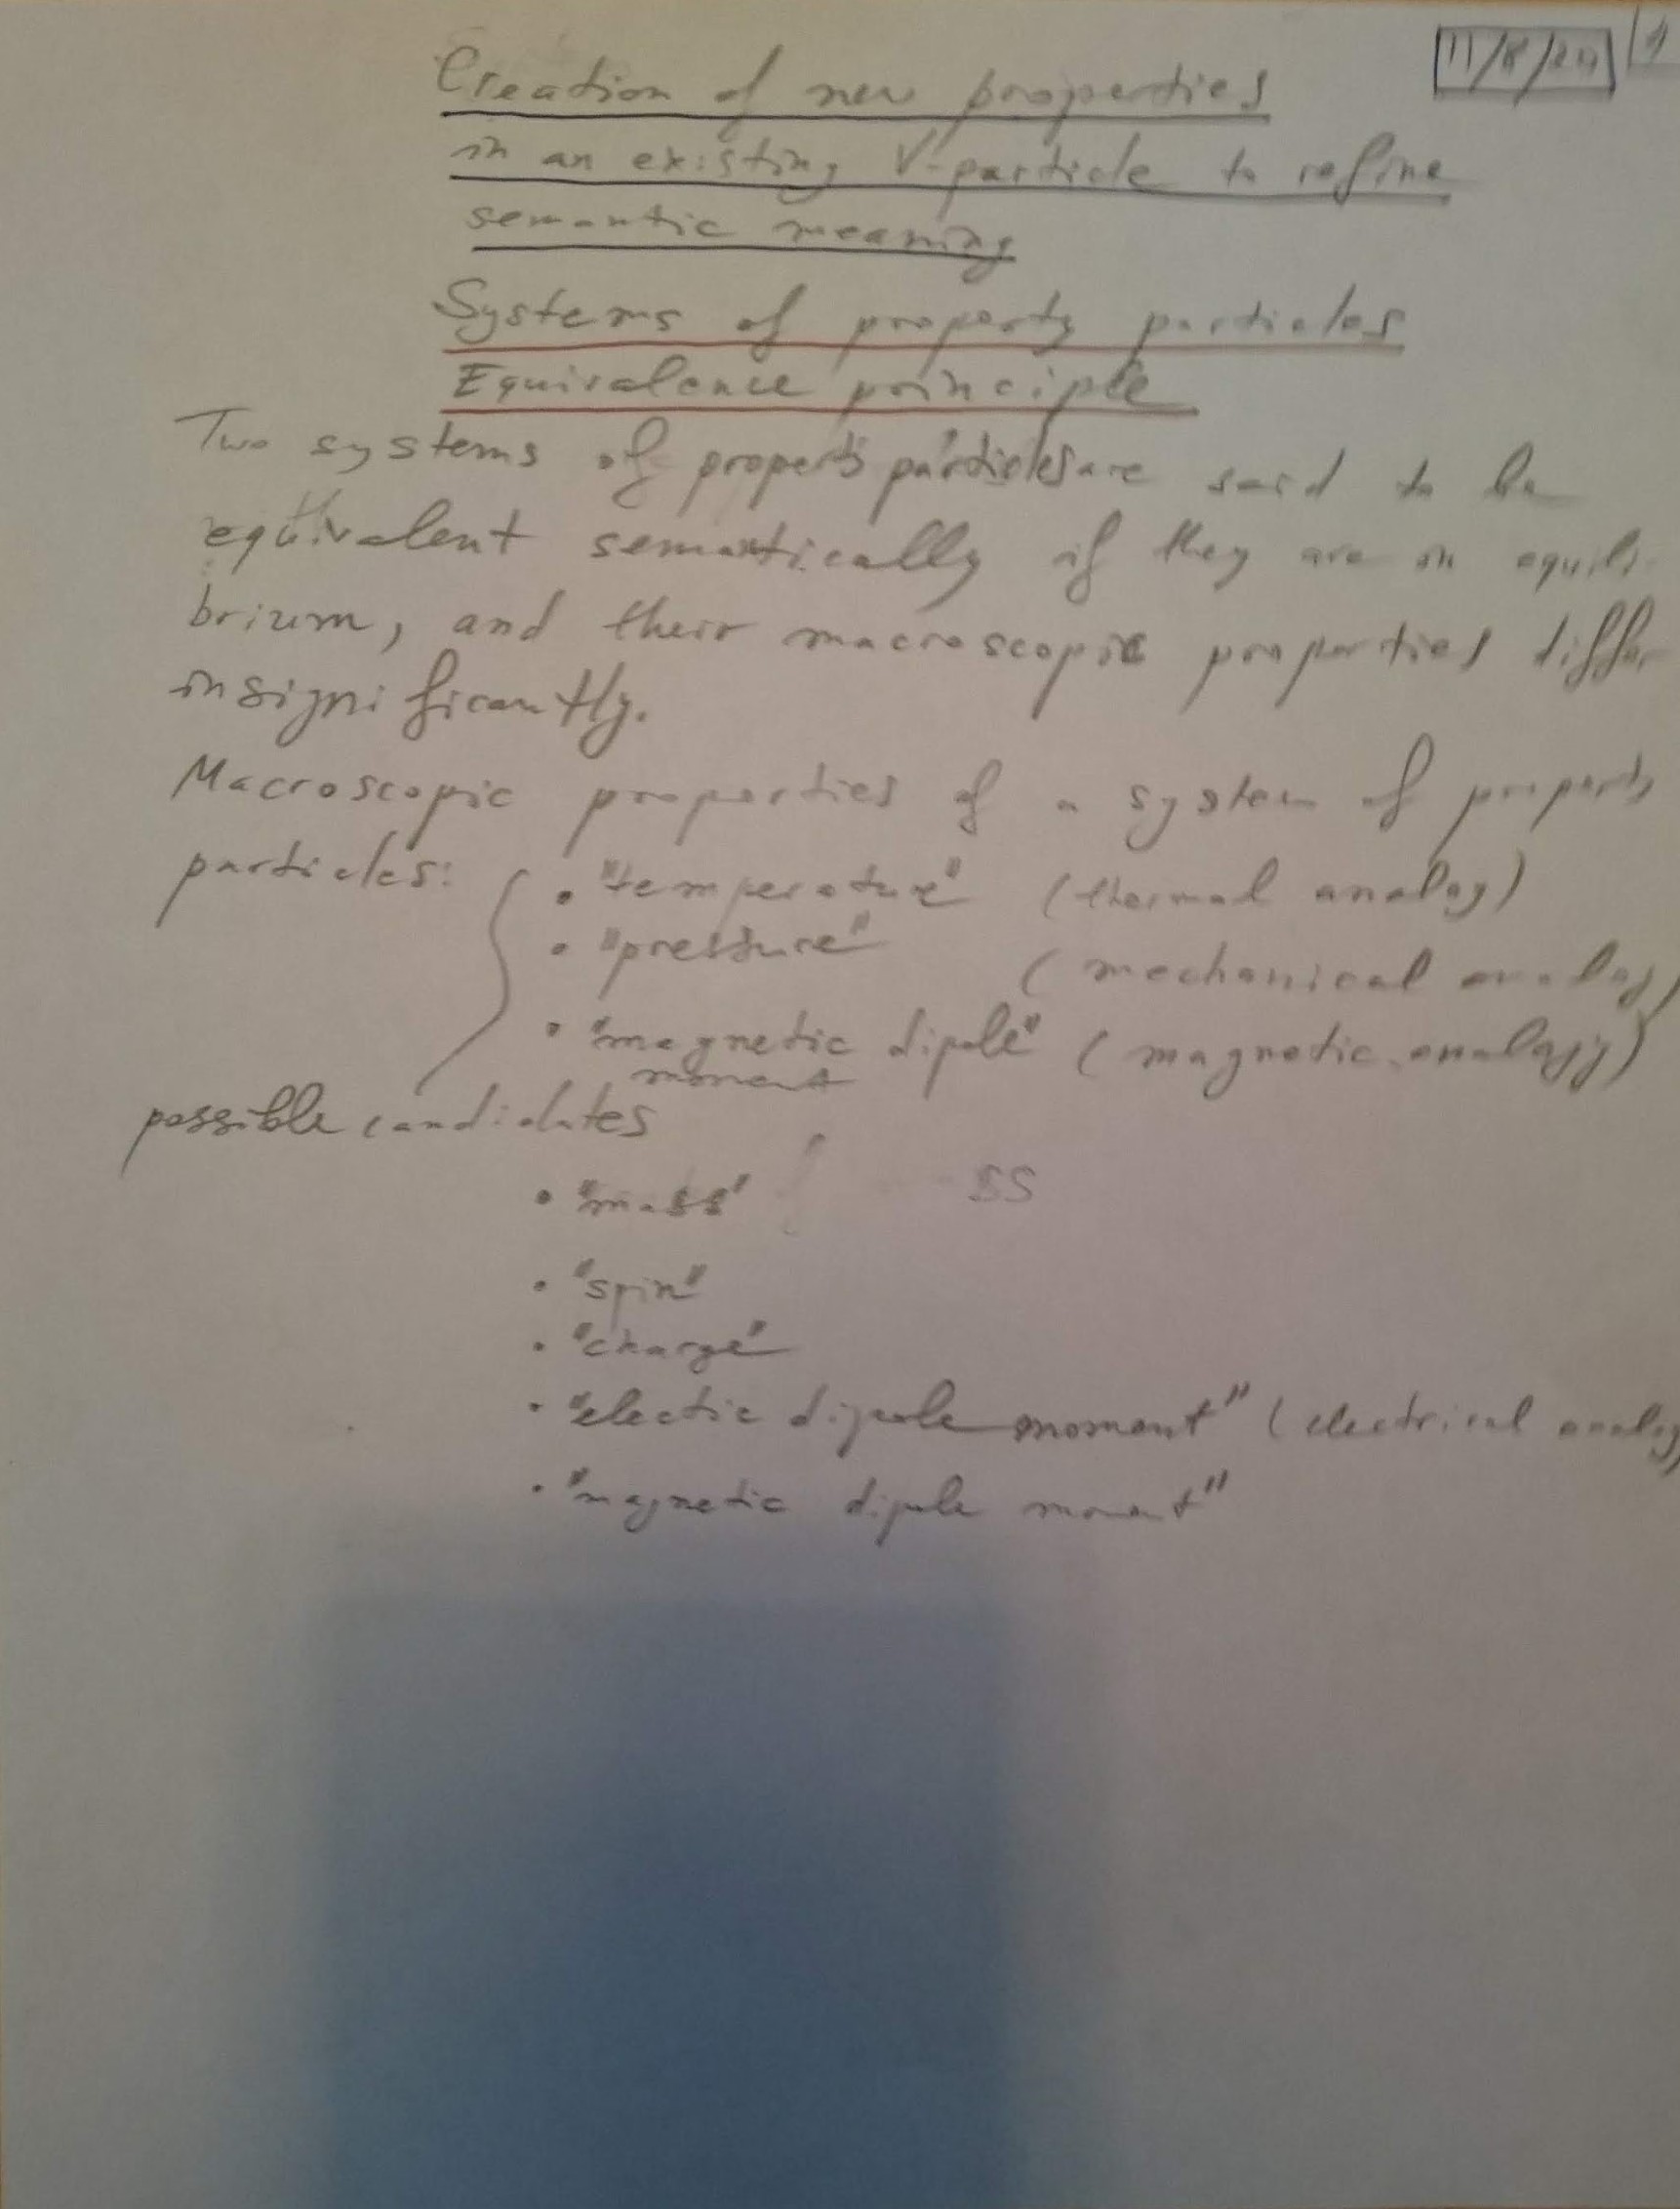 11/8/24 1
Creation of new properties
in an existing V-particle to refine
semantic meaning
Systems of property particles
Equivalence principle
Two systems of property particles are said to be
equivalent semantically if they are in equili-
brium, and their macroscopic properties differ
insignificantly.
Macroscopic properties of a system of property
particles:
• "temperature" (thermal analogy)
• "pressure" (mechanical analogy)
• "magnetic dipole" (magnetic analogy)
moment
possible candidates
• "mass"
SS
• "spin"
• "charge"
• "electic dipole moment" (electrical analogy
• "magnetic dipole moment"